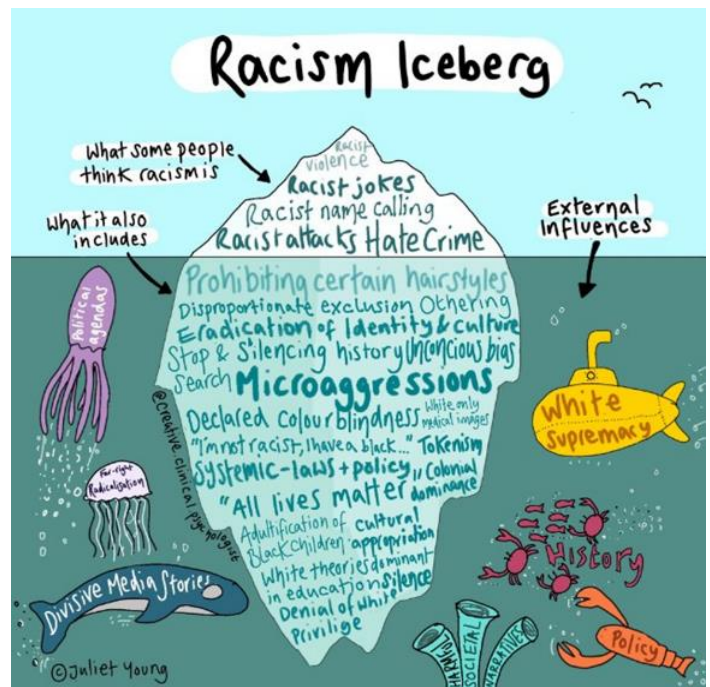 Racism Iceberg
What some people
think racism is
Racist
violence
Racist jokes
Racist name calling
Racist attacks Hate Crime
What it also
includes
External
Influences
Prohibiting certain hairstyles
Disproportionate exclusion Othering
Eradication of Identity & culture
Stop & Silencing history Unconcious bias
Search Microaggressions
Declared colour blindness White only
medical images
"I'm not racist, I have a black..." Tokenism
Systemic-laws + policy Colonial
dominance
"All lives matter"
Adultification of cultural
Black children appropriation
White theories dominant
in education Silence
Denial of White
Privilige
@creative.clinical.psychologist
Political
agendas
Far-right
Radicalisation
Divisive Media Stories
White
Supremacy
History
HARMFUL
SOCIETAL
NARRATIVES
Policy
©Juliet Young